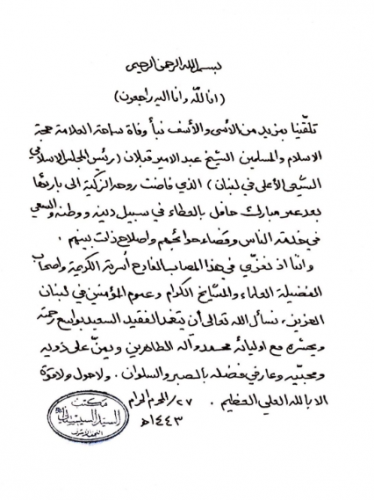 بسم الله الرحمن الرحيم
(انا لله وانا اليه راجعون)
تلقّينا بمزيد من الأسى والأسف نبأ وفاة سماحة العلامة حجة
الاسلام والمسلمين الشيخ عبد الامير قبلان (رئيس المجلس الاسلامي
الشيعي الأعلى في لبنان) الذي فاضت روحه الزكية الى بارئها
بعد عمر مبارك حافل بالعطاء في سبيل دينه ووطنه والسعي
في خدمة الناس وقضاء حوائجهم واصلاح ذات بينهم .
واننا اذ نعزّي في هذا المصاب الفادح أسرته الكريمة واصحاب
الفضيلة العلماء والمشايخ الكرام وعموم المؤمنين في لبنان
العزيز، نسأل الله تعالى أن يتغمد الفقيد السعيد بواسع رحمته
ويحشره مع اوليائه محمد وآله الطاهرين ويمنّ على ذويه
ومحبّيه وعارفي فضله بالصبر والسلوان . ولا حول ولا قوة
الا بالله العلي العظيم . ٢٧/المحرم الحرام
١٤٤٣هـ
مكتب
السيد السيستاني
النجف الأشرف